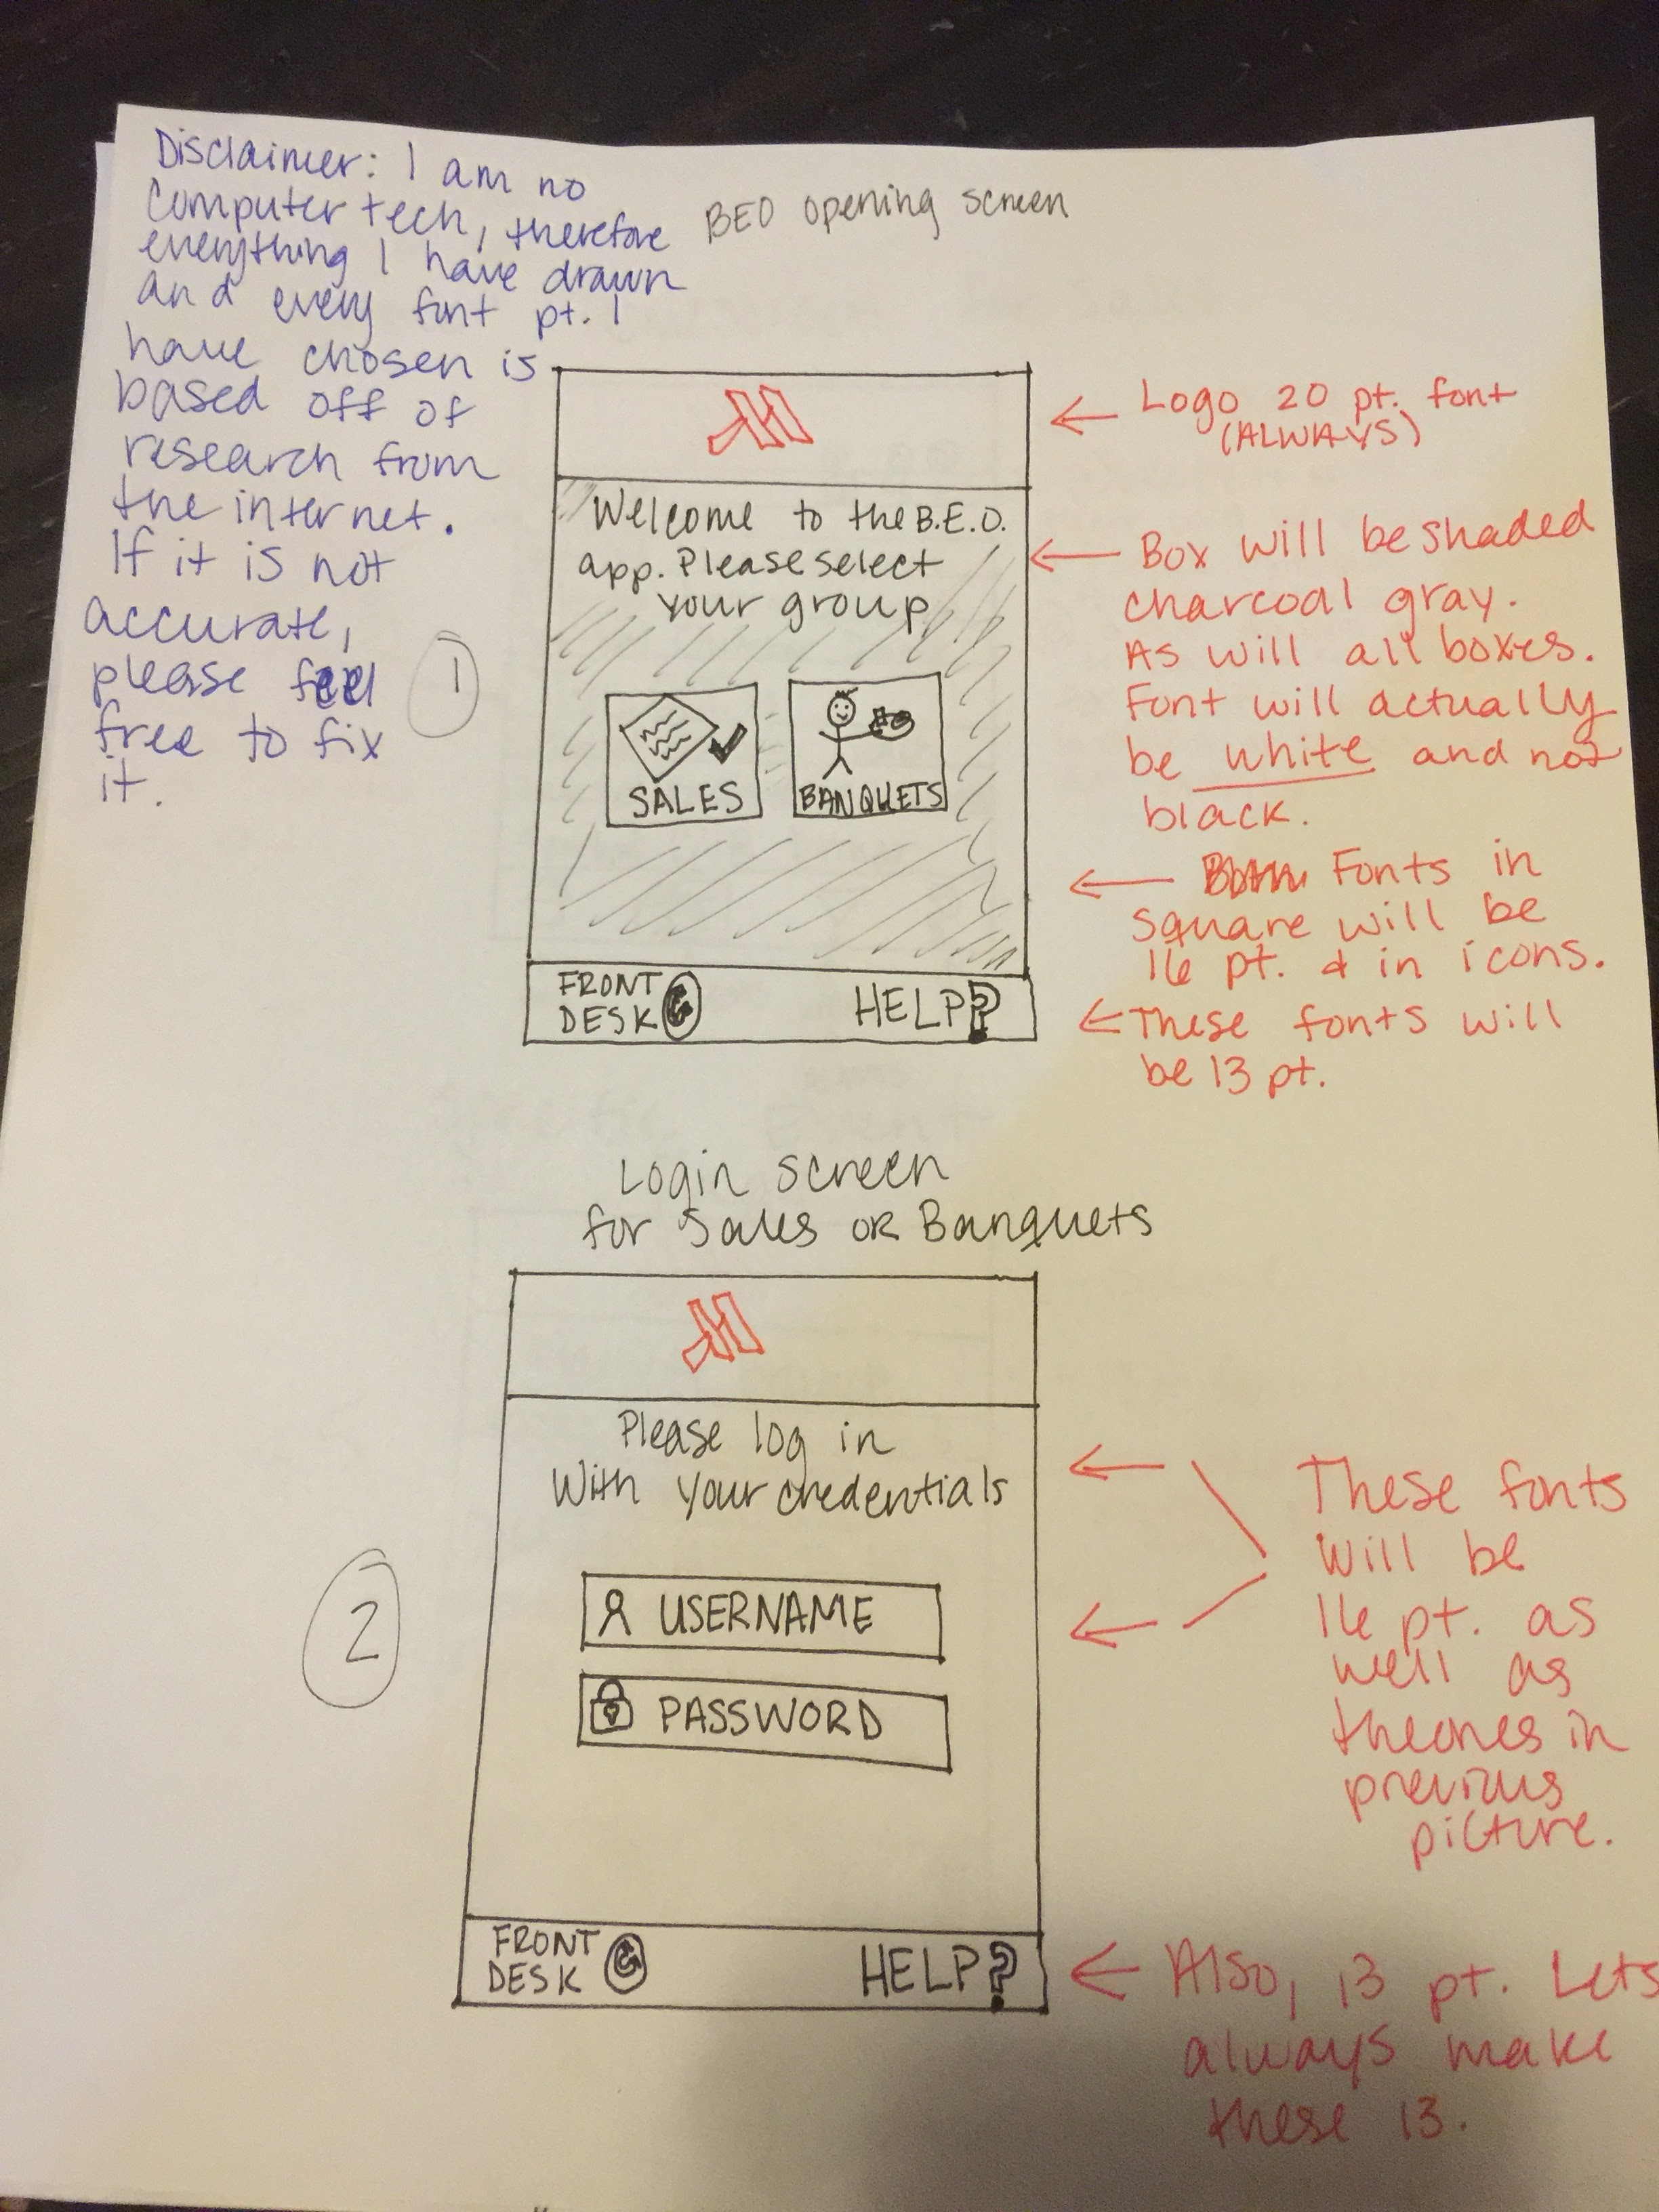 Disclaimer: I am no
computer tech, therefore
everything I have drawn
and every font pt. I
have chosen is
based off of
research from
the internet.
If it is not
accurate,
please feel
free to fix
it.
BEO opening screen
1
Welcome to the B.E.O.
app. Please select
your group
SALES
BANQUETS
FRONT
DESK
HELP?
Logo 20 pt. font
(ALWAYS)
Box will be shaded
charcoal gray.
As will all boxes.
Font will actually
be white and not
black.
Fonts in
square will be
16 pt. & in icons.
These fonts will
be 13 pt.
Login screen
for Sales OR Banquets
2
Please log in
With your credentials
USERNAME
PASSWORD
FRONT
DESK
HELP?
These fonts
will be
16 pt. as
well as
the ones in
previous
picture.
Also, 13 pt. Lets
always make
these 13.